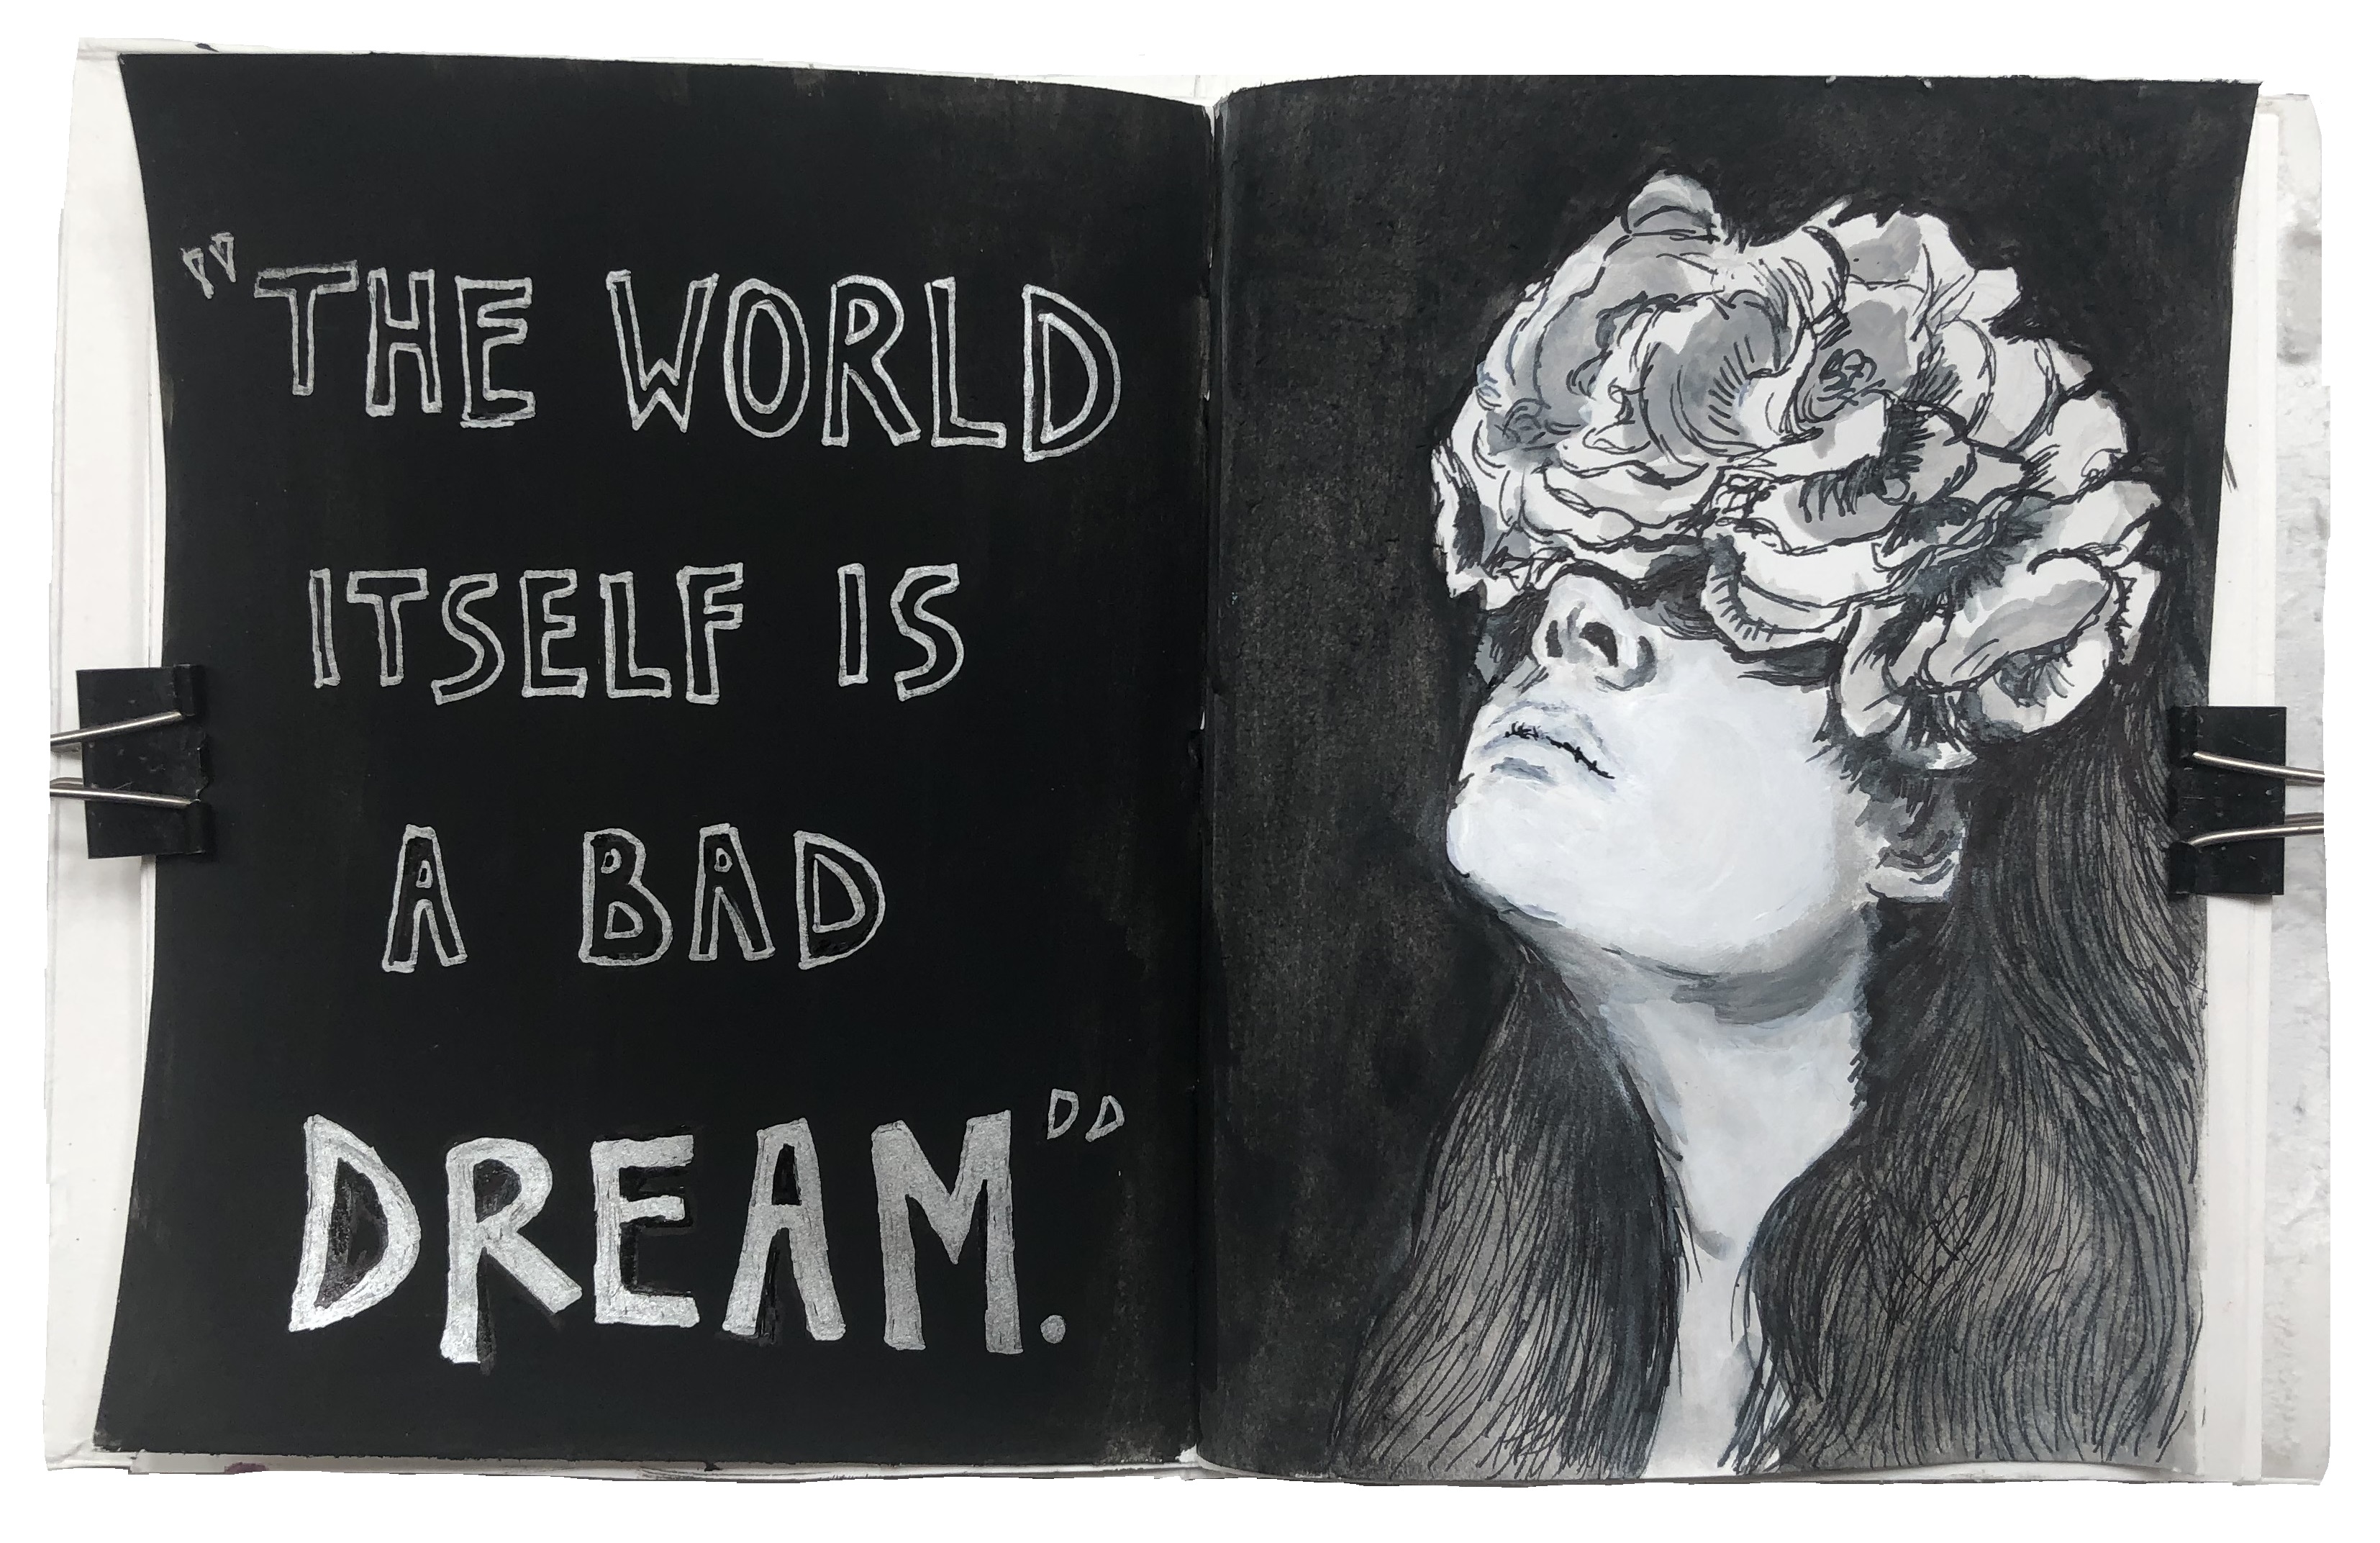 "THE WORLD
ITSELF IS
A BAD
DREAM."